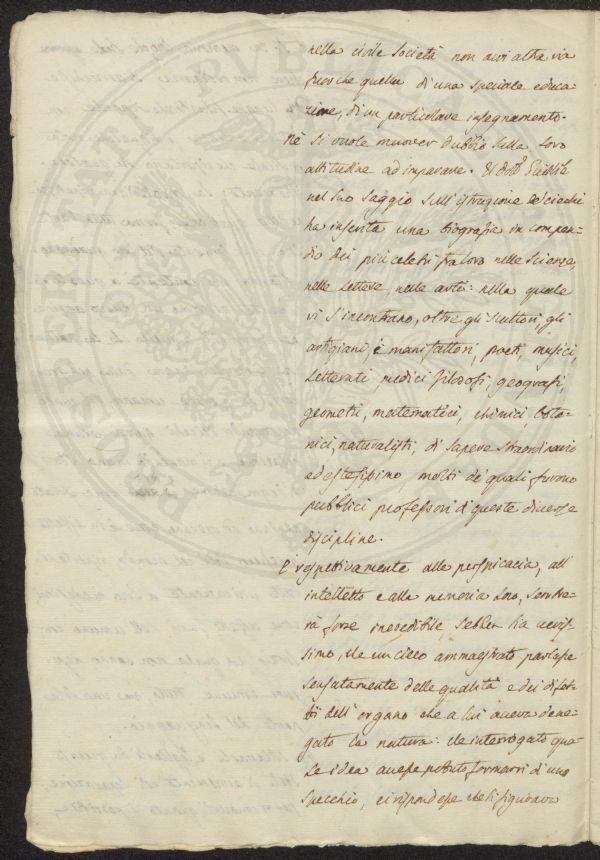 nella civile società non avvi altra via
fuor che quella di una speciale educa-
zione, di un particolare insegnamento.
nè si vuole muover dubbio sulla loro
attitudine ad imparare. Il dott.
nel suo saggio sull'istruzione de' ciechi
ha inserita una biografia in compen-
dio dei più celebri fra loro nelle scienze,
nelle lettere, nelle arti: nella quale
vi s'incontrano, oltre gli scultori, gli
artigiani, è manifattori, poeti, musici,
letterati medici filosofi, geografi,
geometri, matematici, chimici, bota-
nici, naturalisti, di sapere straordinario
ed estesissimo, molti de' quali furono
pubblici professori di queste diverse
discipline.
E rispettivamente alla perspicacia, all'
intelletto e alla memoria loro, sembre-
rà forse incredibile, sebben sia veris-
simo, che un cieco ammaestrato parlasse
sensatamente delle qualità e dei difet-
ti dell'organo che a lui aveva dene-
gato la natura: che interrogato qua-
le idea avesse potuto formarsi di uno
specchio, ei rispondesse che si figurava
PVBLICA